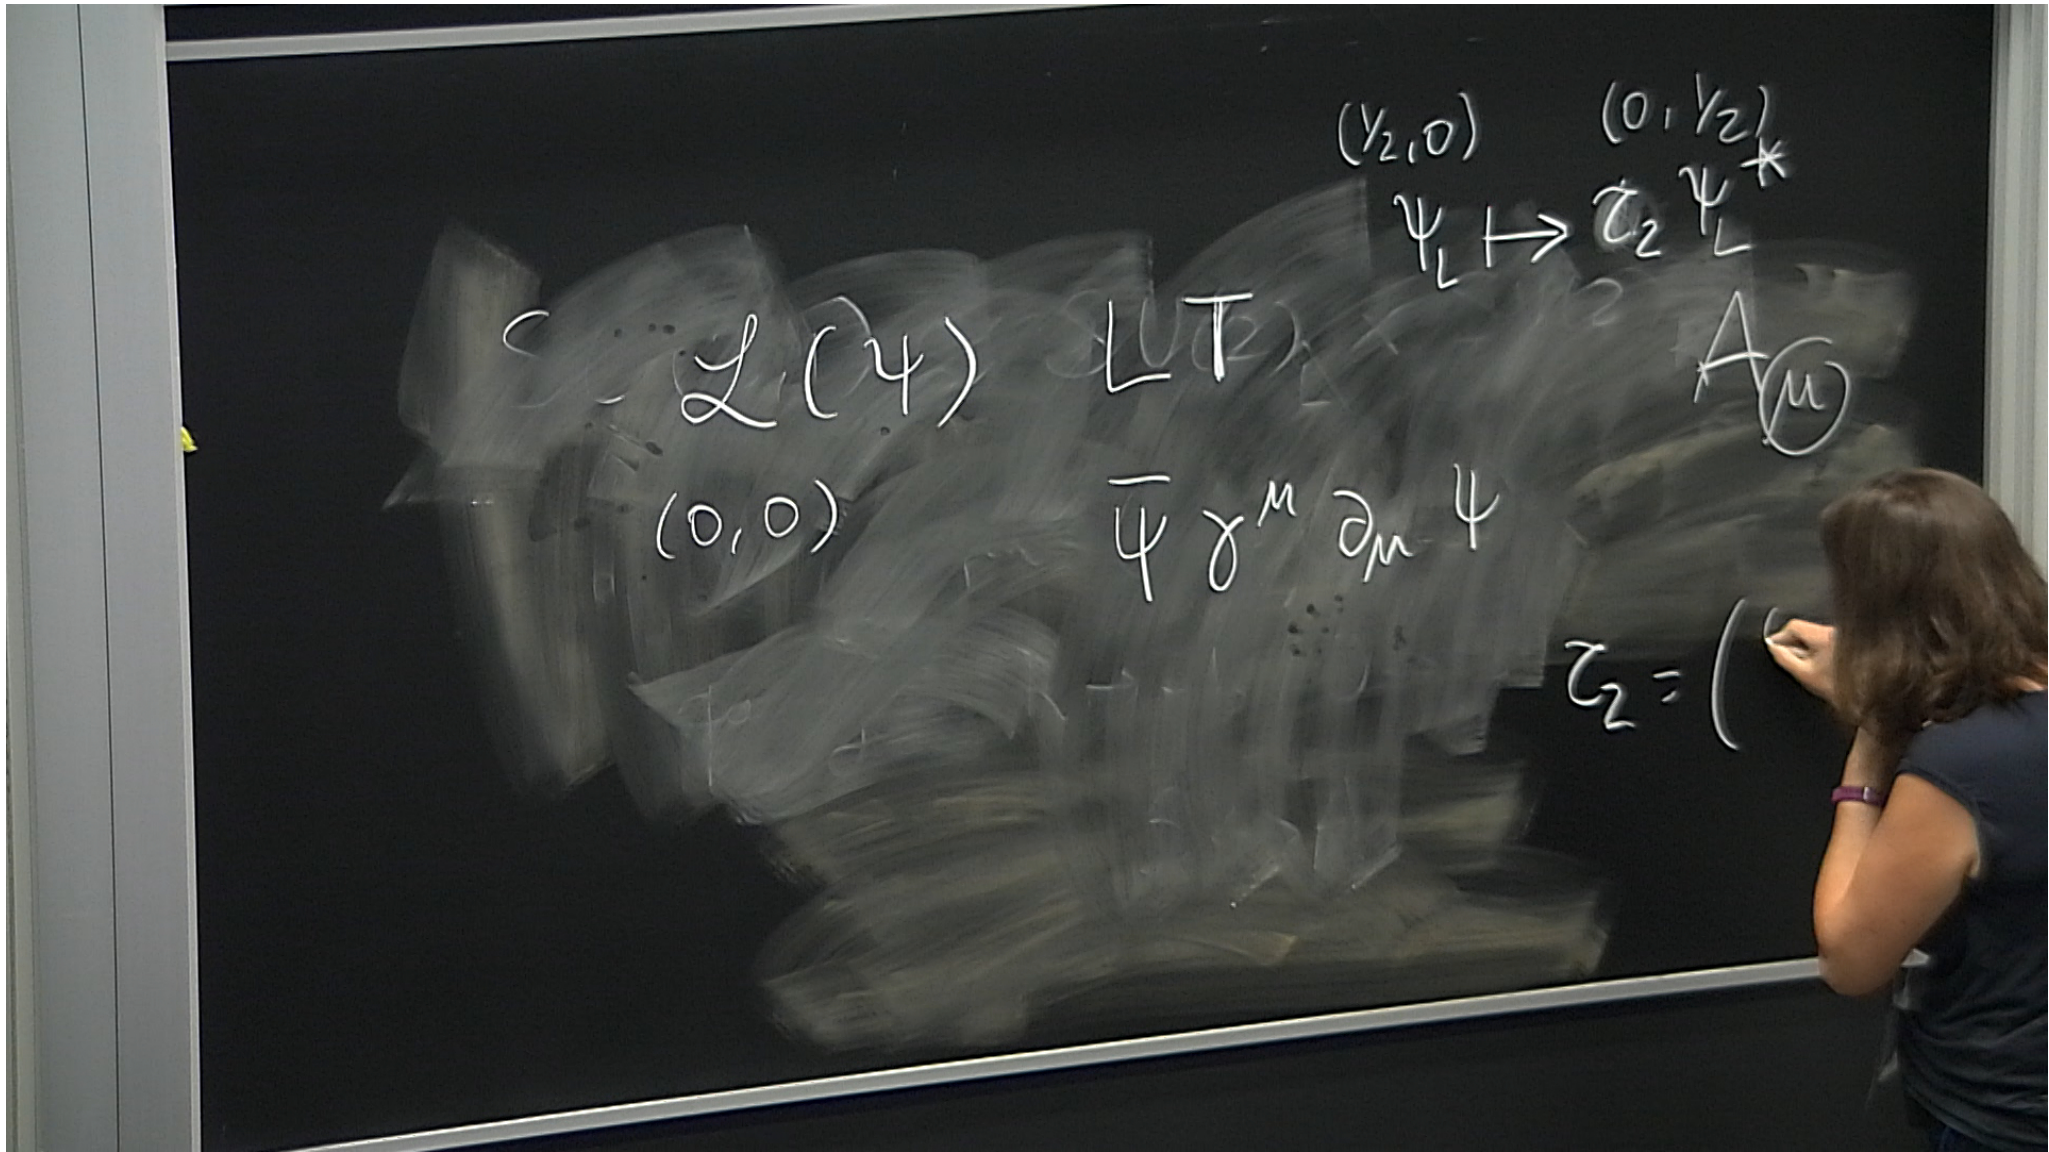 (1/2,0) (0,1/2)
ψ_L ↦ τ_2 ψ_L^*
ℒ(ψ) LT A_μ
(0,0) ψ̄ γ^μ ∂_μ ψ
τ_2 = (